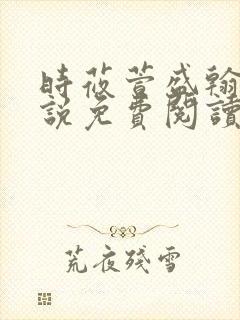 時莜萱盛翰
說免費閱讀
荒夜殘雪